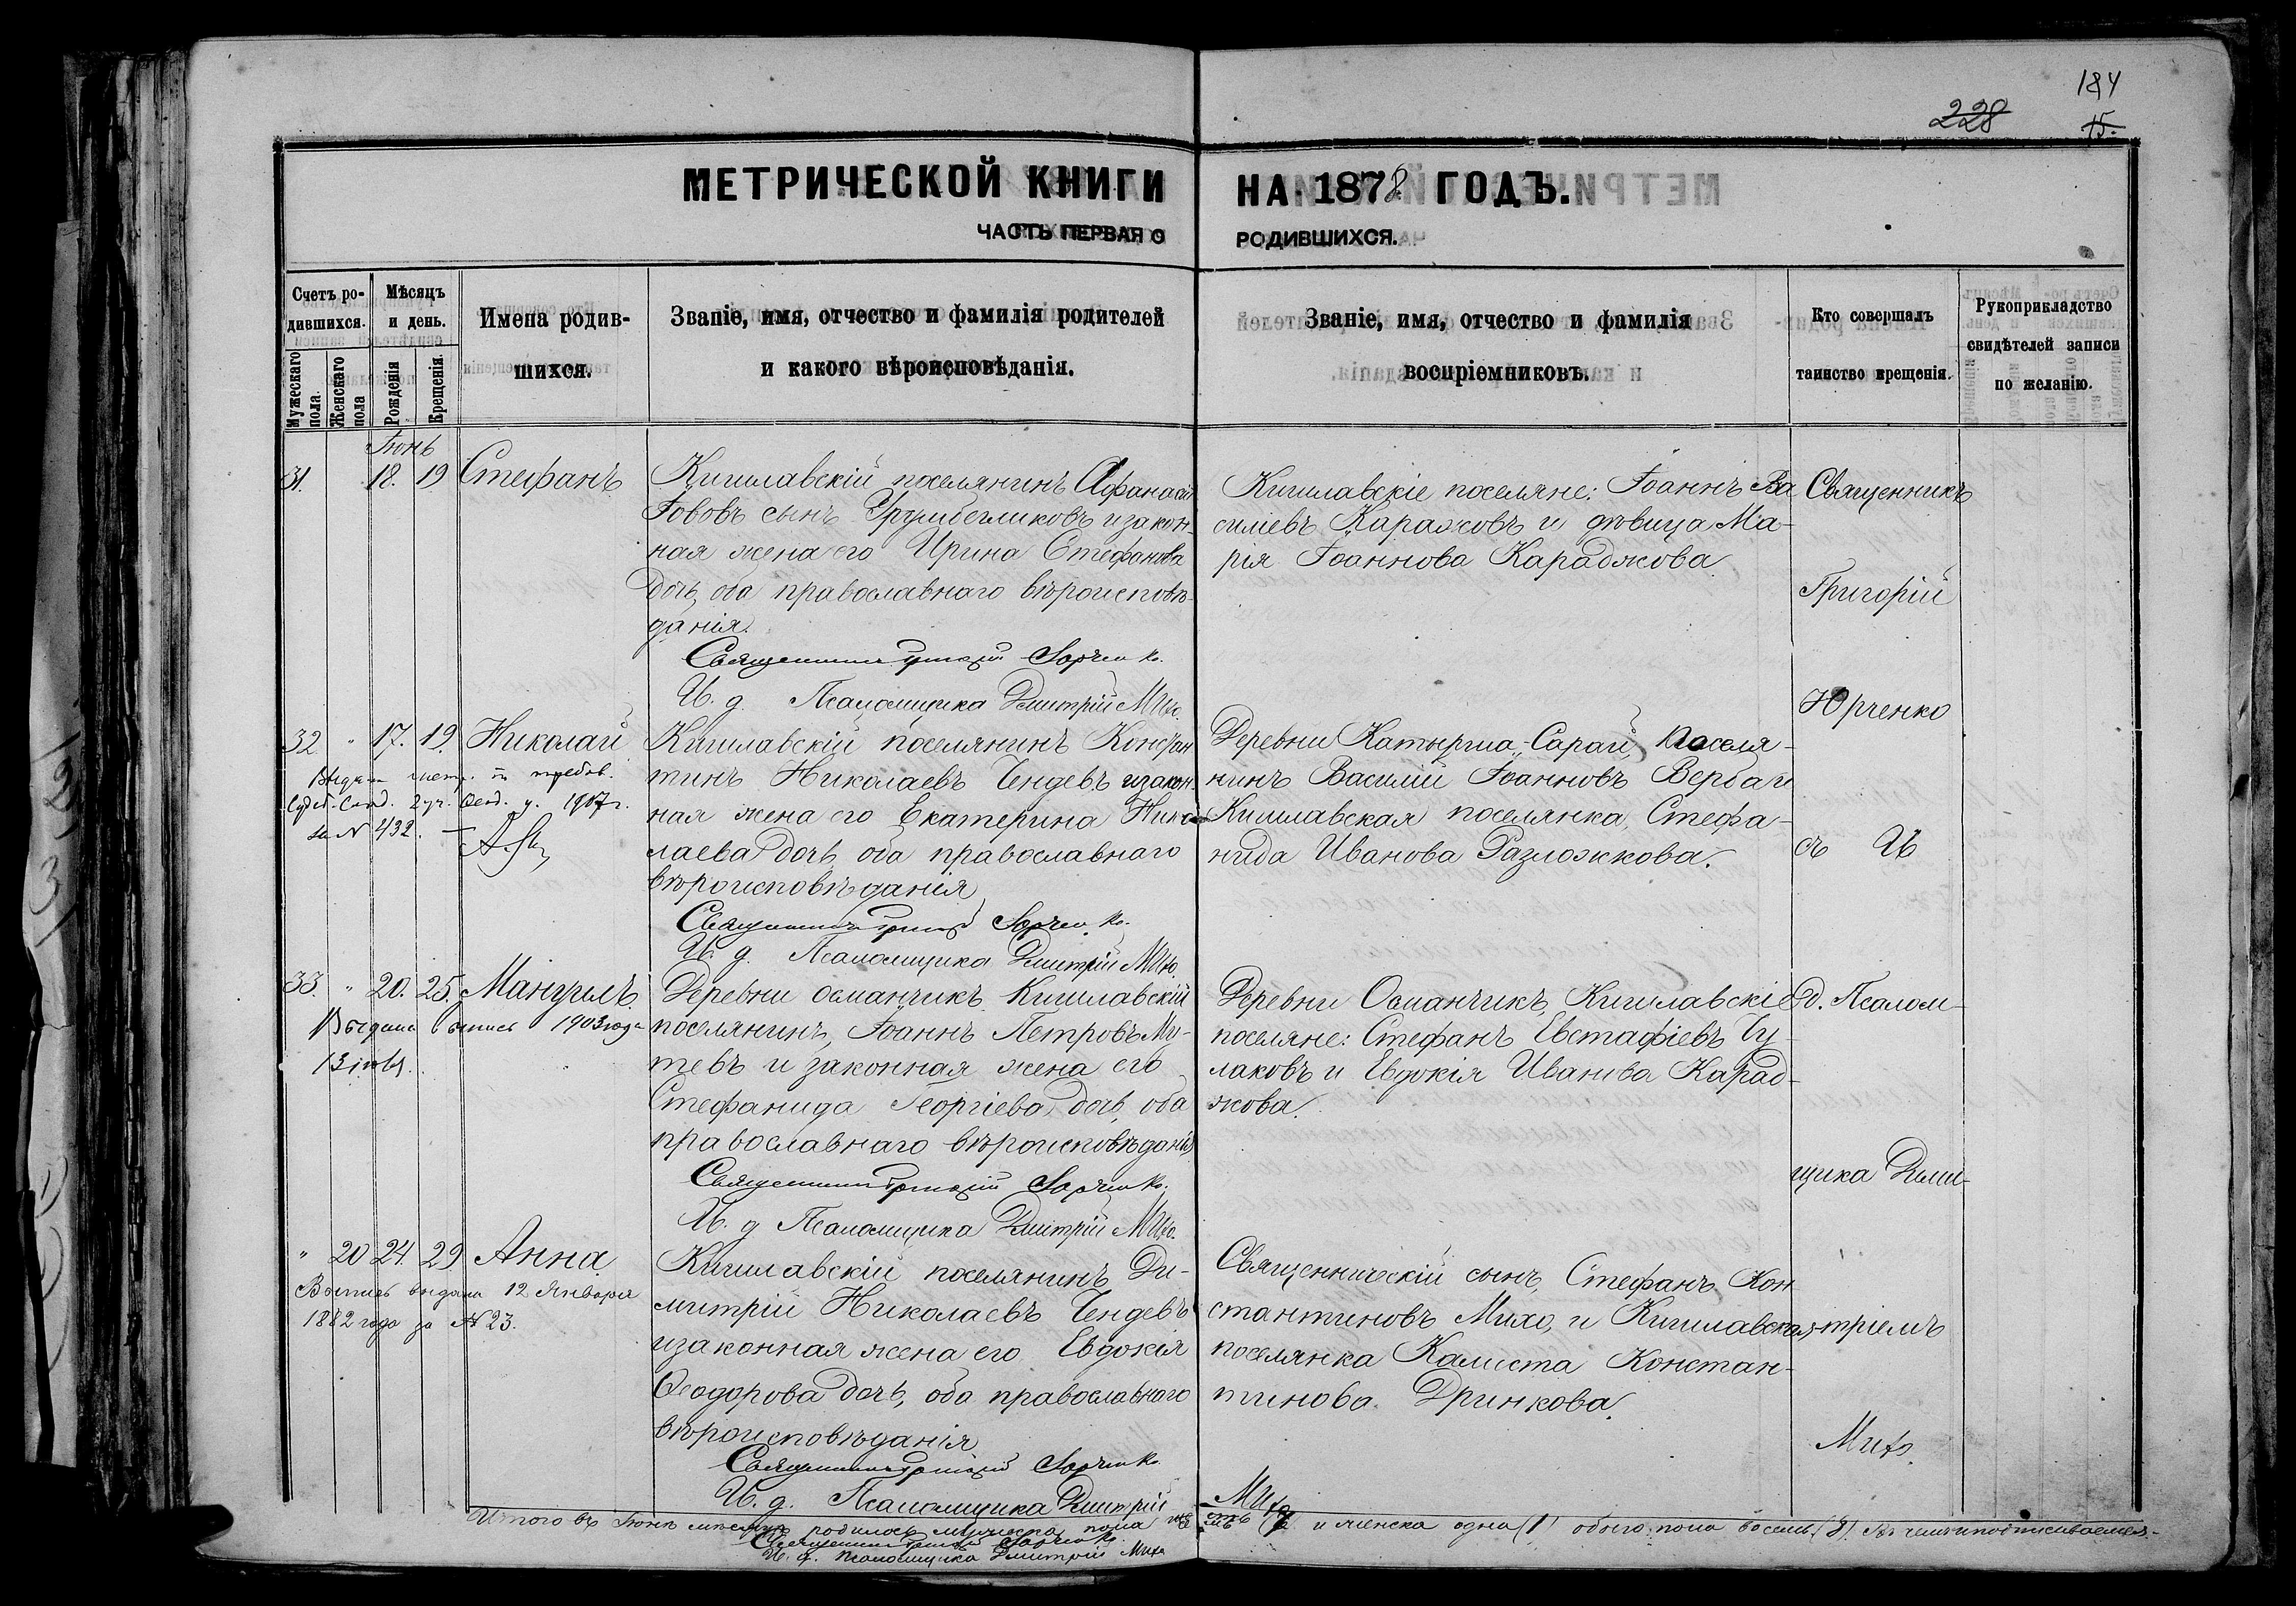 184
228
15.
МЕТРИЧЕСКОЙ КНИГИ НА 1878 ГОДЪ.
ЧАСТЬ ПЕРВАЯ О РОДИВШИХСЯ.
Счетъ ро-
дившихся.
Мужескаго пола.
Женскаго пола
Мѣсяцъ
и день.
Рожденія
Крещенія.
Имена родив-
шихся.
Званіе, имя, отчество и фамилія родителей
и какого вѣроисповѣданія.
Званіе, имя, отчество и фамилія
воспріемниковъ.
Кто совершалъ
таинство крещенія.
Рукоприкладство
свидѣтелей записи
по желанію.
Іюнь
31. 18. 19 Стефанъ
Кишлавскій поселянинъ Афанасій
Іововъ сынъ и закон-
ная жена его Ирина Стефанова
дочь, оба православнаго вѣроисповѣ-
данія.
Священникъ Григорій Юрченко.
И. д. Псаломщика Дмитрій Михо.
Кишлавскіе поселяне: Іоаннъ Ва
силіевъ Каражовъ и дѣвица Ма-
рія Іоаннова Караджова
32 " 17. 19. Николай
1907 г.
за № 432.
Кишлавскій поселянинъ Констан
тинъ Николаевъ Чендевъ и закон-
ная жена его Екатерина Нико
лаева дочь, оба православнаго
вѣроисповѣданія
Священникъ Григорій Юрченко.
И. д. Псаломщика Дмитрій Михо.
Деревни Катырша-Сарай, поселя-
нинъ Василій Іоанновъ Вербаги
Кишлавская поселянка, Стефа-
нида Иванова Разложкова.
33. " 20. 25. Мануилъ
Выдана выпись 1903 года
Деревни Османчикъ Кишлавскій
поселянинъ, Іоаннъ Петровъ Му-
тевъ и законная жена его
Стефанида Георгіева дочь, оба
православнаго вѣроисповѣданія
Священникъ Григорій Юрченко.
И. д Псаломщика Дмитрій Михо.
Деревни Османчикъ, Кишлавскіе
поселяне: Стефанъ Евстафіевъ Чу-
лаковъ и Евдокія Иванова Карад-
жова.
" 20 24. 29 Анна
Выпись выдана 12 Января
1882 года за № 23.
Кишлавскій поселянинъ Ди-
митрій Николаевъ Чендевъ
и законная жена его Евдокія
Ѳеодорова дочь, оба православнаго
вѣроисповѣданія
Священникъ Григорій Юрченко
И. д. Псаломщика Дмитрій Михо
Священническій сынъ, Стефанъ Кон
стантиновъ Михо, и Кишлавская
поселянка Калиста Констан-
тинова Дринкова.
Священникъ
Григорій
Юрченко
съ И
д. Псалом-
щика Дми-
тріемъ
Михо.
Итого въ Іюнѣ мѣсяцѣ родилось мужеска пола и женска одна (1) обоего пола восемь (8)
Священникъ Григорій Юрченко.
И. д. псаломщика Дмитрій Михо